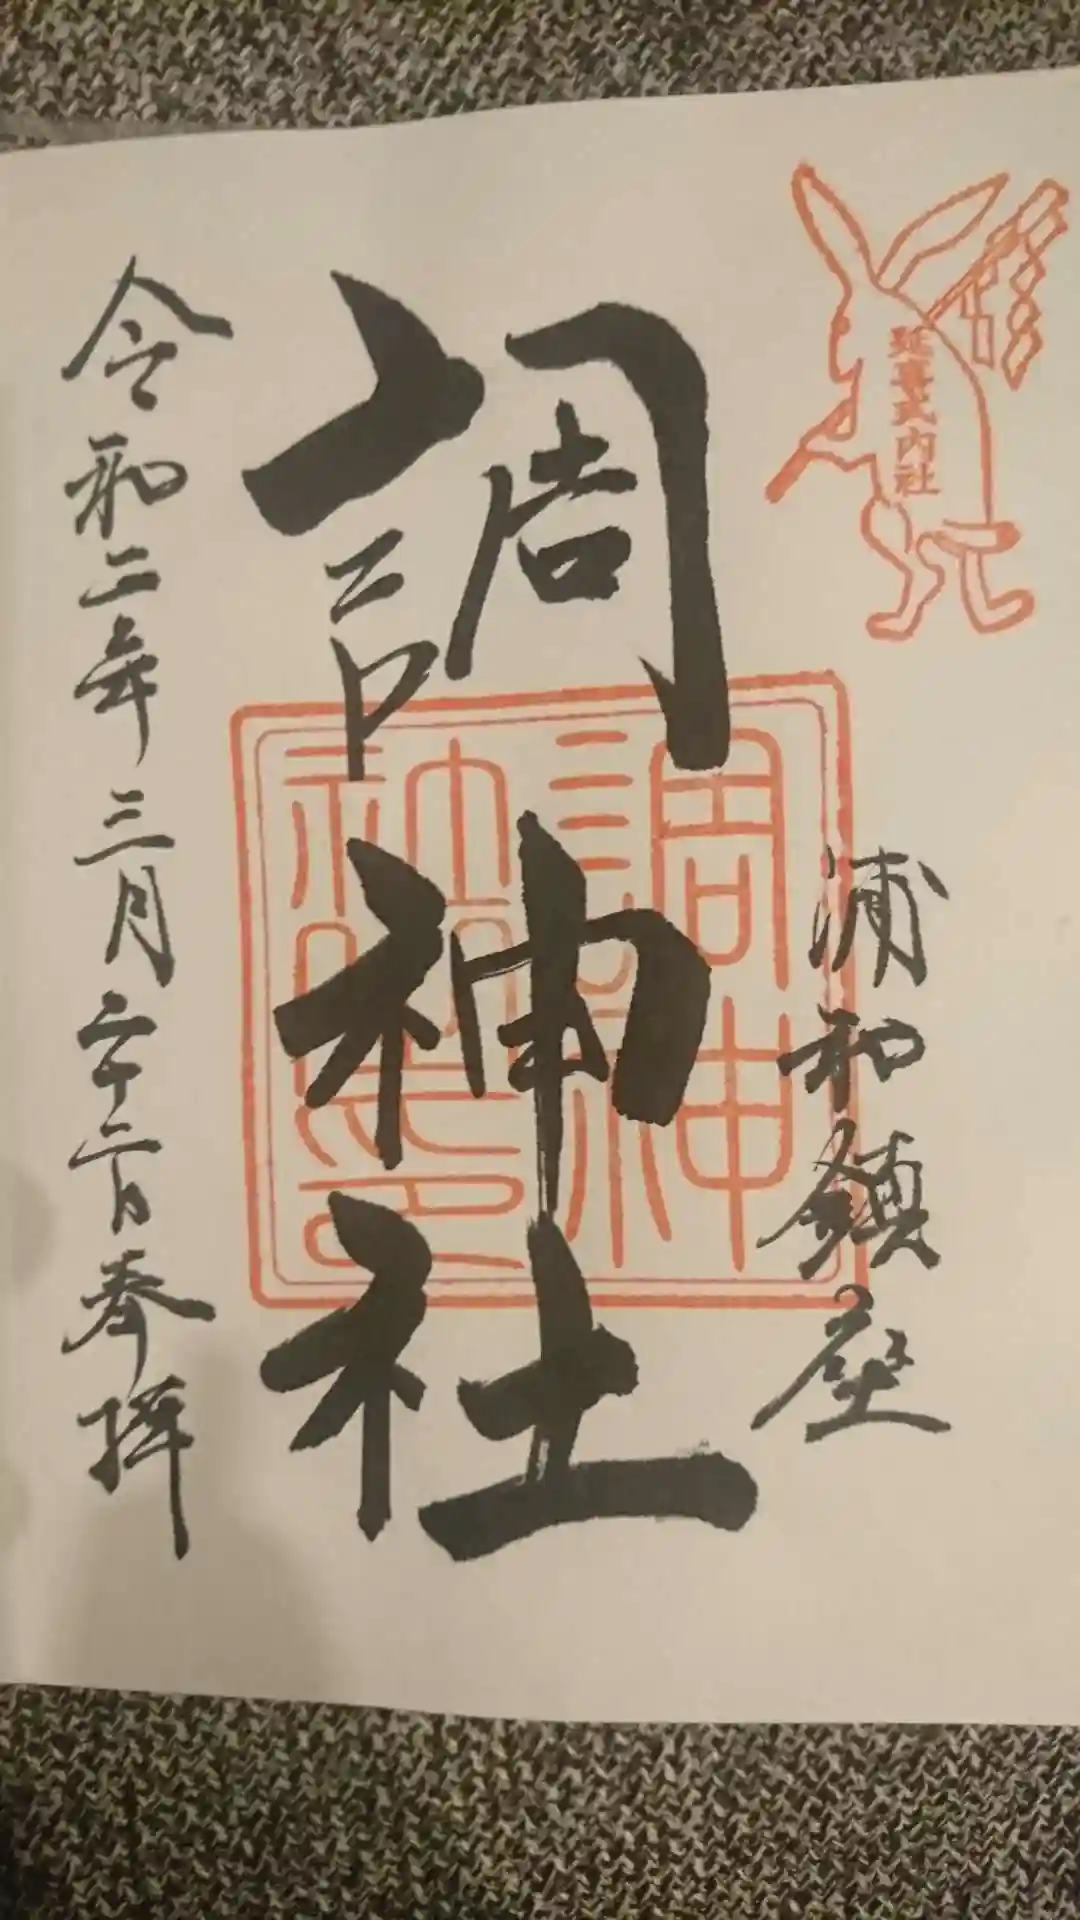 延喜式内社
浦和鎮座
調神社
令和二年三月二十二日奉拝